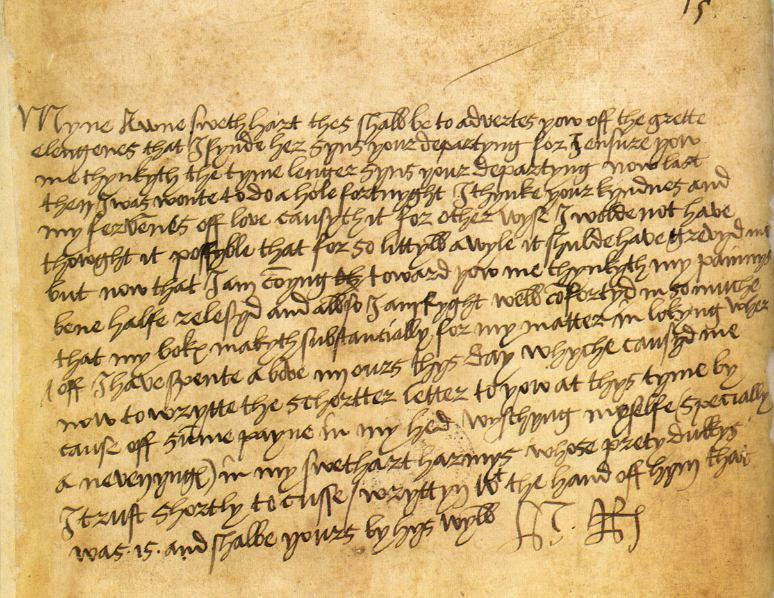 15
Myne Awne swethhart thes shall be to advertes yow off the grette
elengenes that I fynde her syns your departyng for I ensure yow
me thynkyth the tyme lenger syns your departyng now last
then I was wonte to do a hole fortnyght I thynke your kyndnes and
my fervēnes off love causyth it for other wyse I wolde not have
thowght it possyble that for so littyll a wyle it shulde have grevyd me
but now that I am cōmyng toward yow me thynkyth my painnys
bene halfe relesyd and allso I am ryght well cōfortyd in so muche
that my boke makyth substantially for my matter in lokyng wher
off I have spente above iiij ours thys day whyche causyd me
now to wrytte the schortter letter to yow at thys tyme by
cause off sūme payne in my hed wysshyng my selfe (specially
a nevenyng) in my swethart harmys whose prety dukkys
I trust shortly to cusse / wryttyn wt the hand off hym that
was is and shalbe yours by hys wyll H. R